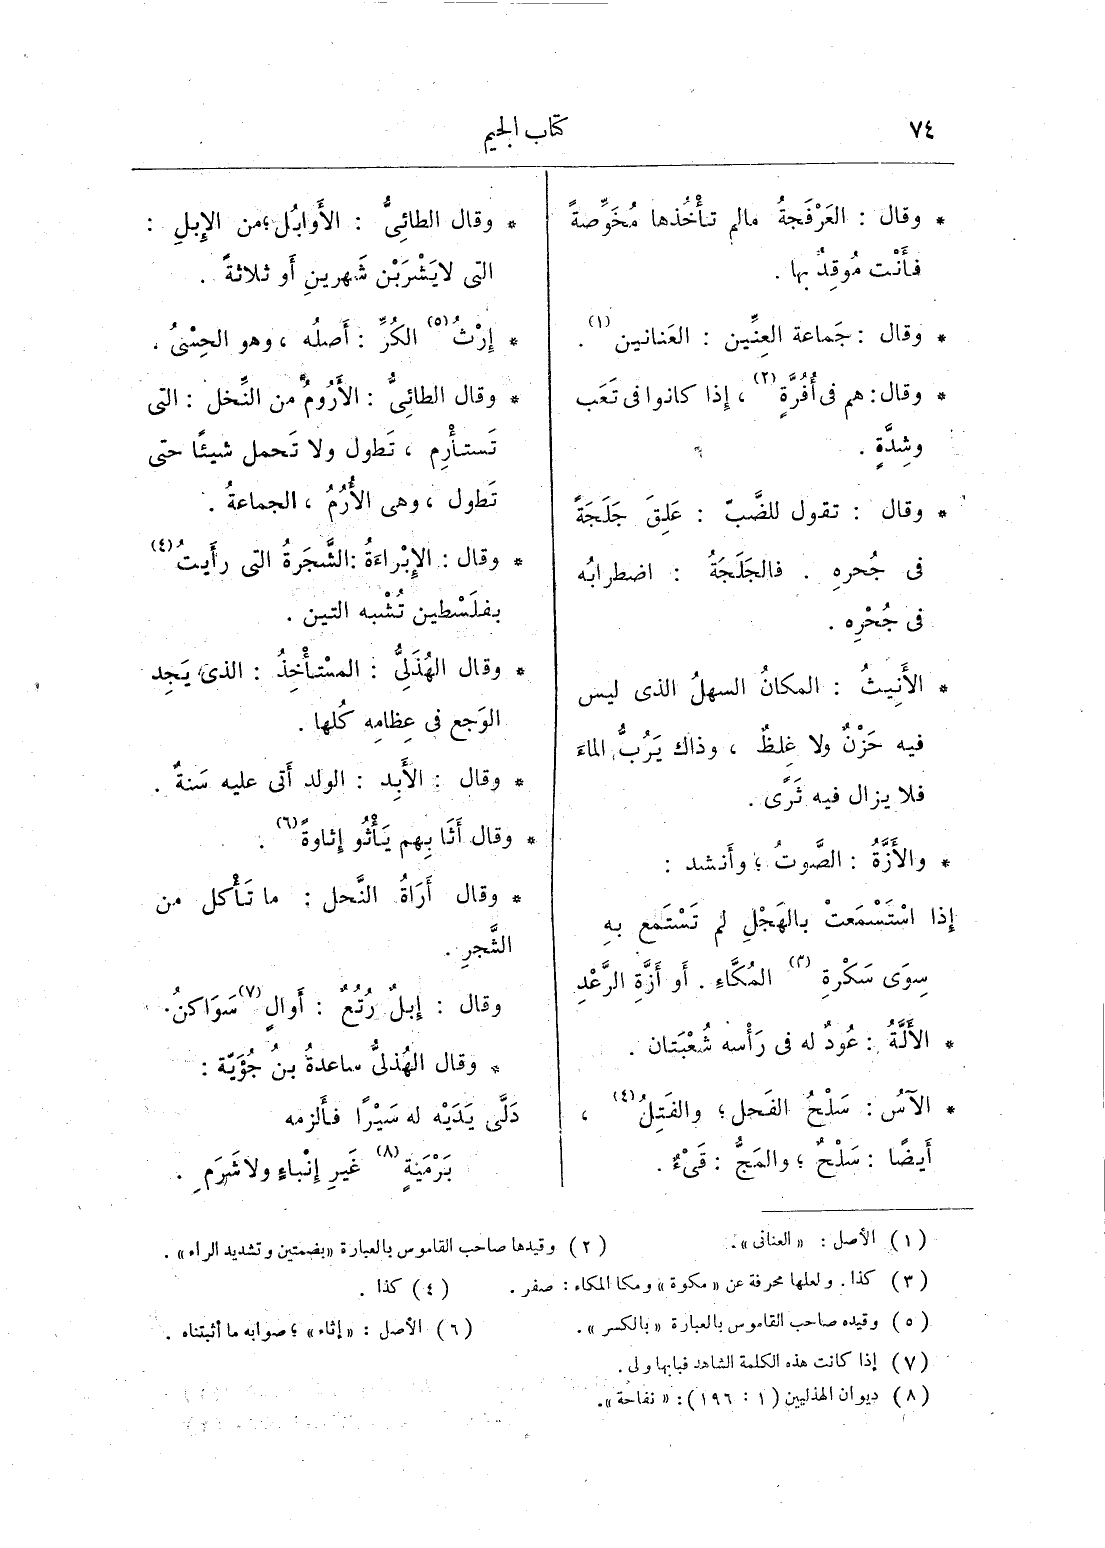 ٧٤
كتاب الجيم
* وقال : العَرْفَجةُ مالم تأْخُذها مُخَوِّصةً
فأَنْت مُوقِدٌ بها .
* وقال : جَماعة العِنِّين : العَنانين (١) .
* وقال: هم فى أُفُرَّةٍ (٢) ، إذا كانوا فى تَعَب
وشِدَّةٍ .
* وقال : تقول للضَّبّ : عَلِقَ جَلَجَةً
فى جُحرهِ . فالجَلَجَةُ : اضطرابُه
فى جُحْرِه .
* الأَنِيثُ : المكانُ السهلُ الذى ليس
فيه حَزْنٌ ولا غِلظٌ ، وذاك يَرُبُّ الماءَ
فلا يزال فيه ثَرًى .
* والأَزَّةُ : الصَّوتُ ؛ وأَنشد :
إذا اسْتَسْمَعتْ بالهَجْلِ لم تَسْتَمع بهِ
سِوَى سَكْرةِ (٣) المُكَّاءِ . أو أَزَّةِ الرَّعْدِ
* الأَلَّةُ : عُودٌ له فى رَأْسه شُعْبَتان .
* الآسُ : سَلْحُ الفَحل ؛ والفَتِلُ (٤) ،
أَيضًا : سَلْحٌ ؛ والمَجُّ : قَىْءٌ .
* وقال الطائِىُّ : الأَوابُل ؛من الإِبلِ :
التى لايَشْرَبْن شَهرينِ أَو ثلاثةً .
* إِرْثُ (٥) الكُرِّ : أَصلُه ، وهو الحِسْىُ .
* وقال الطائِىُّ : الأَرُومُ من النَّخل : التى
تَستأْرِم ، تَطول ولا تَحمل شيئًا حتى
تَطول ، وهى الأُرُمُ ، الجماعةُ .
* وقال : الإِبْراءَةُ :الشَّجَرةُ التى رأَيتُ (٤)
بفلَسْطين تُشْبه التين .
* وقال الهُذَلِىُّ : المسْتأْخِذُ : الذى يَجِد
الوَجع فى عِظامِه كُلها .
* وقال : الأَبِد : الولد أَتى عليه سَنةٌ .
* وقال أَثَا بِهم يَأْثُو إِثاوةً (٦) .
* وقال أَرَاةُ النَّحل : ما تَأْكل من
الشَّجرِ .
وقال : إِبلٌ رُتُعٌ : أَوالٍ (٧) سَوَاكنُ.
* وقال الهُذلىُّ ساعدةُ بنُ جُؤَيّة :
دَلَّى يَدَيْه له سَيْرًا فأَلزمه
بَرْمَيَةٍ (٨) غَيرِ إِنْباءٍ ولا شَرَمِ .
(١) الأصل : « العنانى ».
(٢) وقيدها صاحب القاموس بالعبارة «بضمتين وتشديد الراء» .
(٣) كذا . ولعلها محرفة عن « مكوة » ومكا المكاء : صفر .
(٤) كذا .
(٥) وقيده صاحب القاموس بالعبارة « بالكسر ».
(٦) الأصل : « إثاء» ؛ صوابه ما أثبتناه .
(٧) إذا كانت هذه الكلمة الشاهد فبابها ولى .
(٨) ديوان الهذليين (١ : ١٩٦): « نفاحة ».